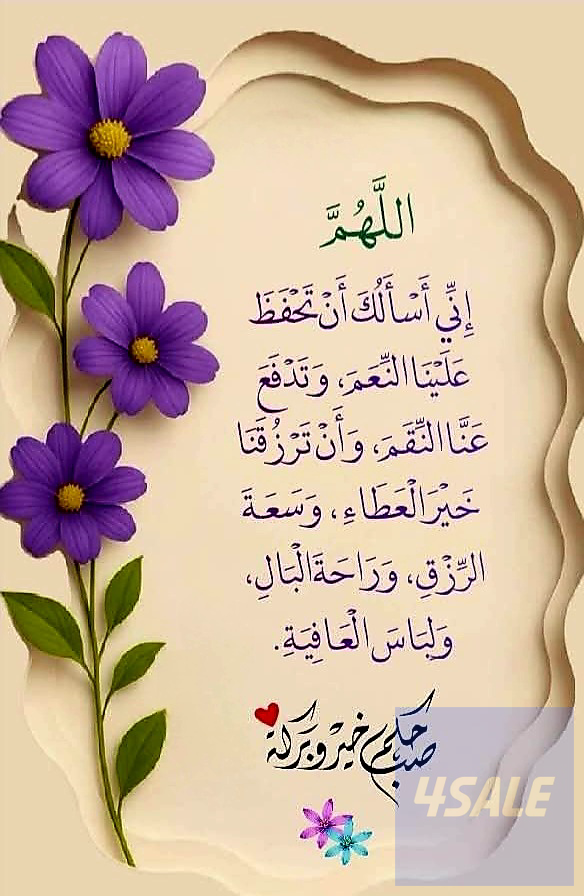 اللَّهُمَّ
إِنِّي أَسْأَلُكَ أَنْ تَحْفَظَ
عَلَيْنَا النِّعَمَ، وَتَدْفَعَ
عَنَّا النِّقَمَ، وَأَنْ تَرْزُقَنَا
خَيْرَ الْعَطَاءِ، وَسَعَةَ
الرِّزْقِ، وَرَاحَةَ الْبَالِ،
وَلِبَاسَ الْعَافِيَةِ.
صباحكم خير وبركة
4SALE